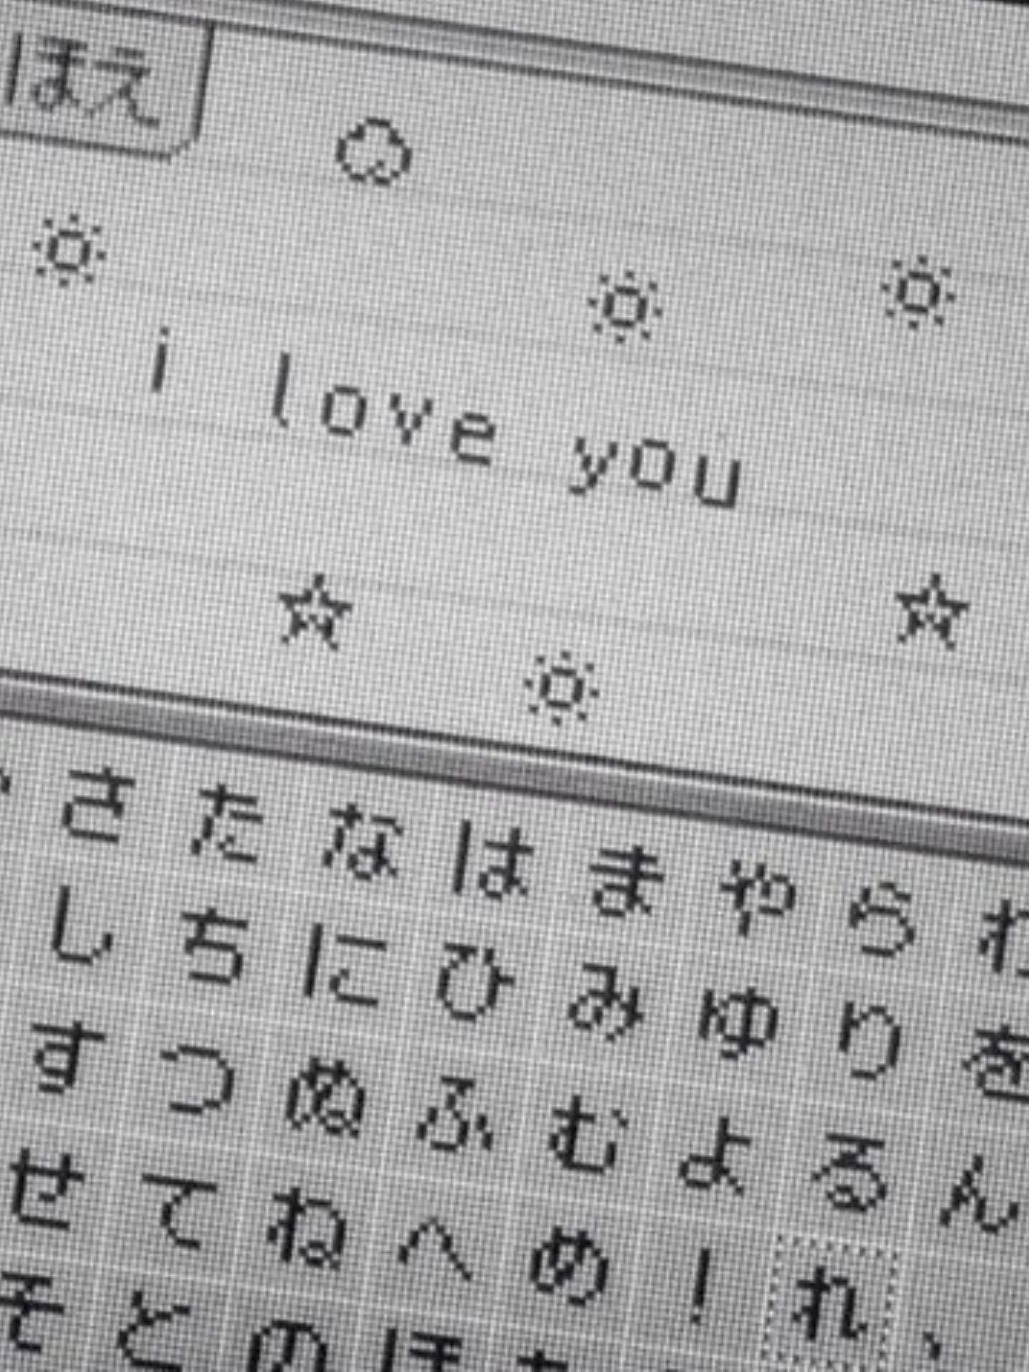 ほえ
i love you
さ た な は ま や ら わ
し ち に ひ み ゆ り を
す つ ぬ ふ む よ る ん
せ て ね へ め ！ れ 、
そ と の ほ も